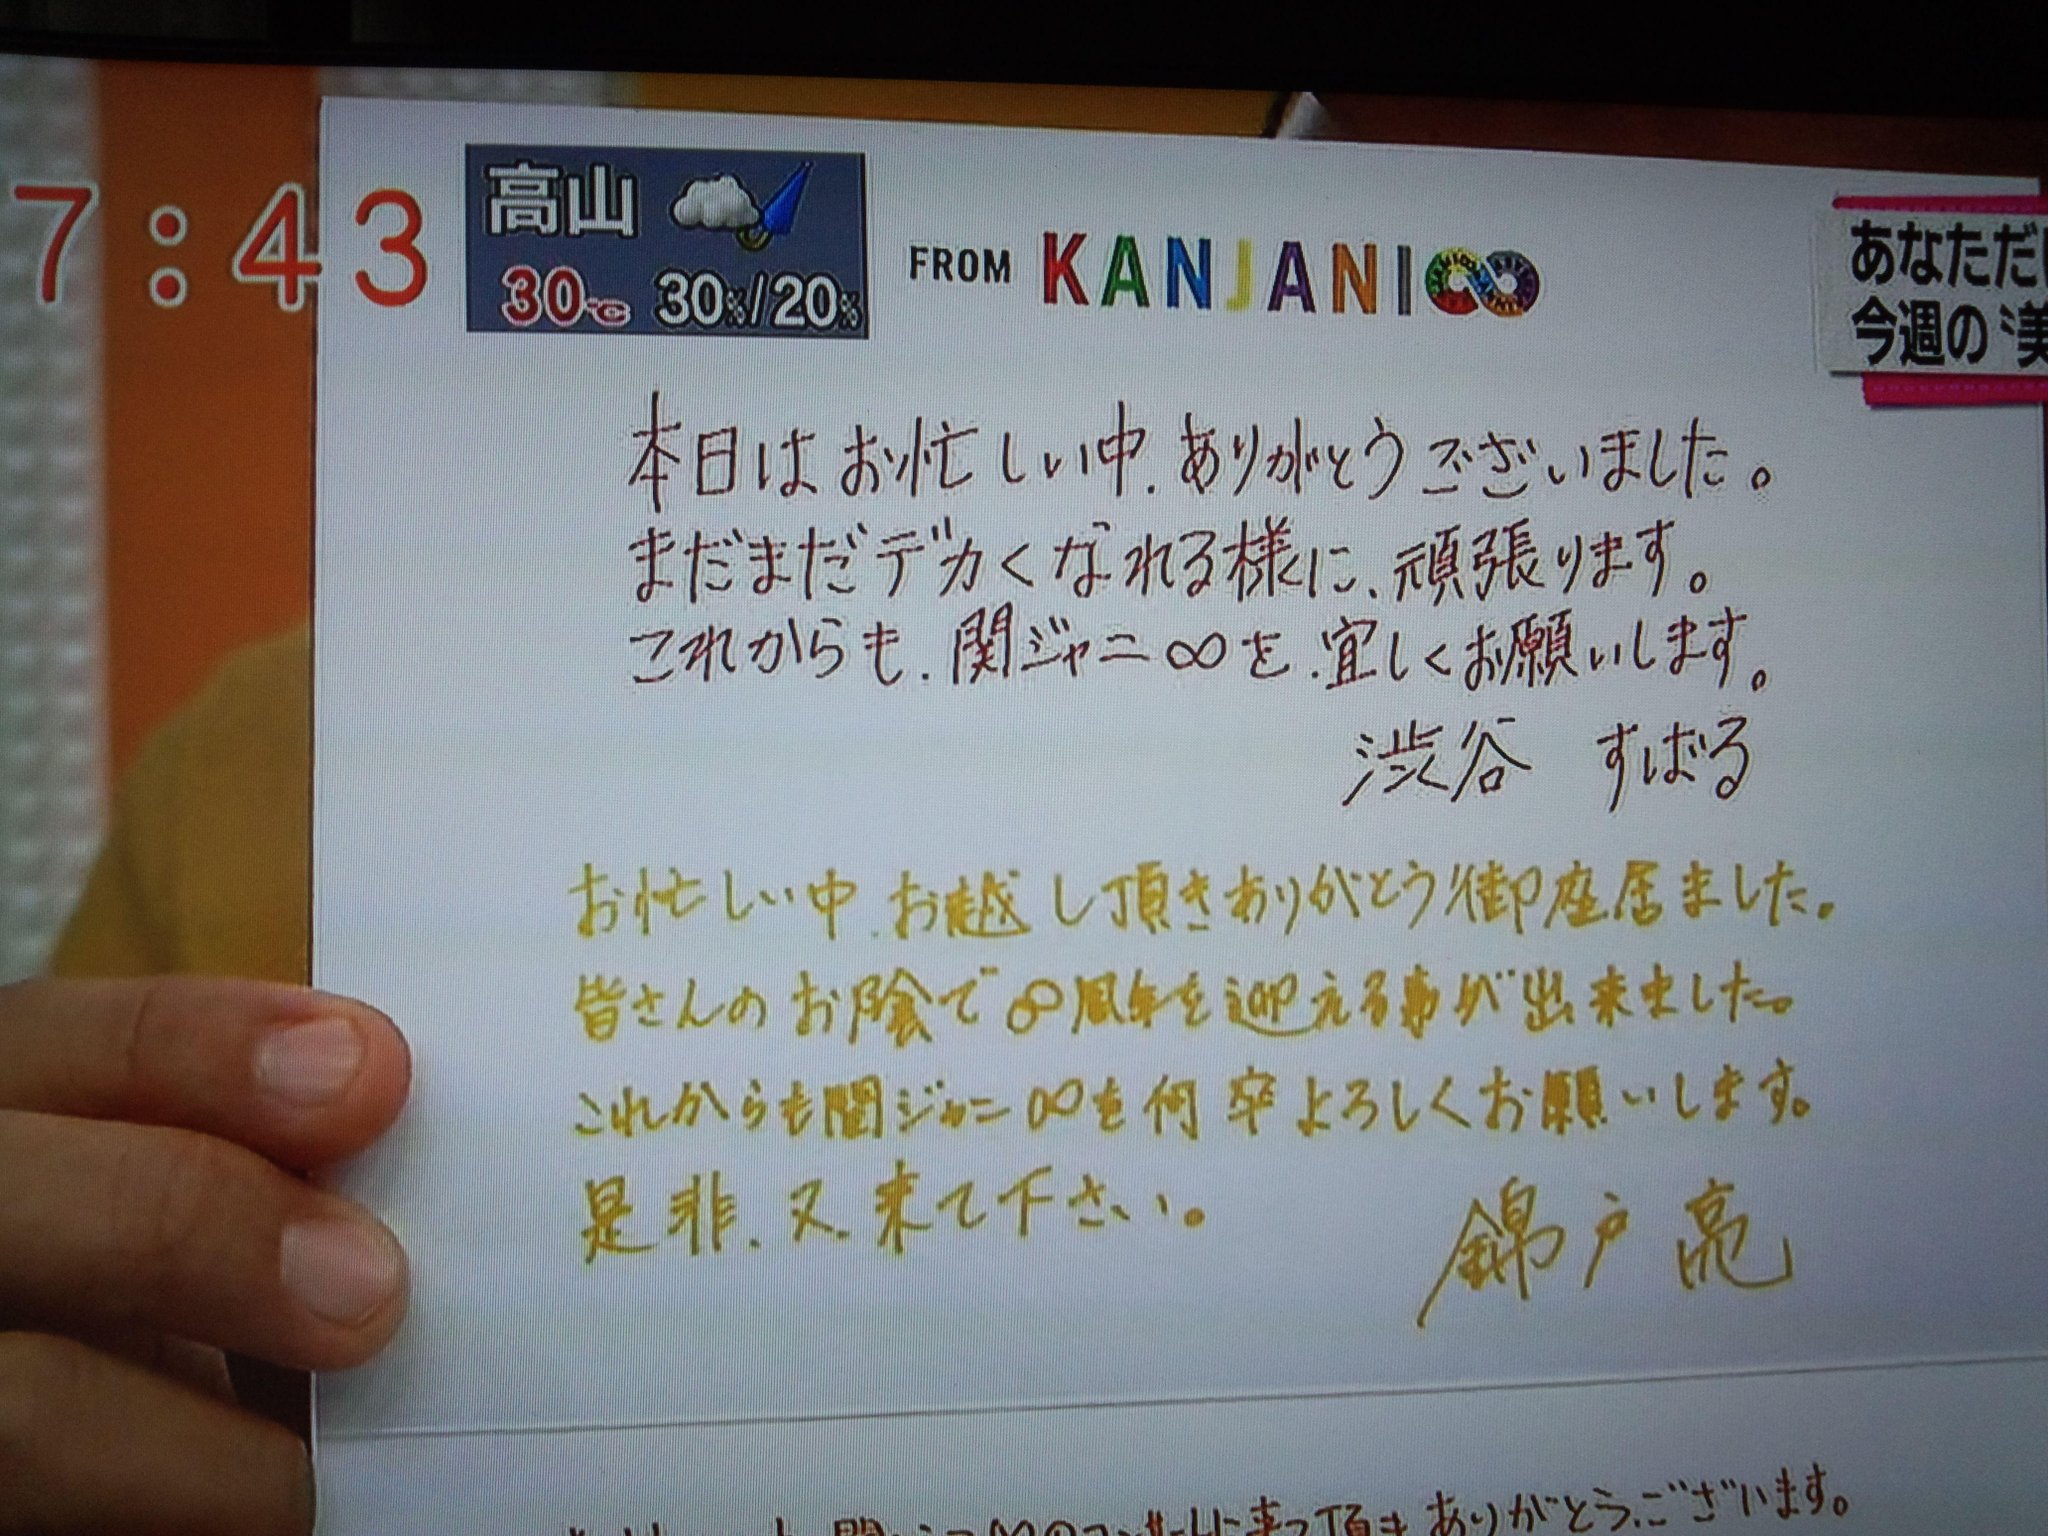 7:43
高山
30℃ 30%/20%
FROM KANJANI∞
あなただ
今週の
本日はお忙しい中、ありがとうございました。
まだまだデカくなれる様に、頑張ります。
これからも、関ジャニ∞を、宜しくお願いします。
渋谷 すばる
お忙しい中、お越し頂きありがとう御座居ました。
皆さんのお陰で8周年を迎える事が出来ました。
これからも関ジャニ∞を何卒よろしくお願いします。
是非、又、来て下さい。
錦戸亮
来て頂きありがとうございます。